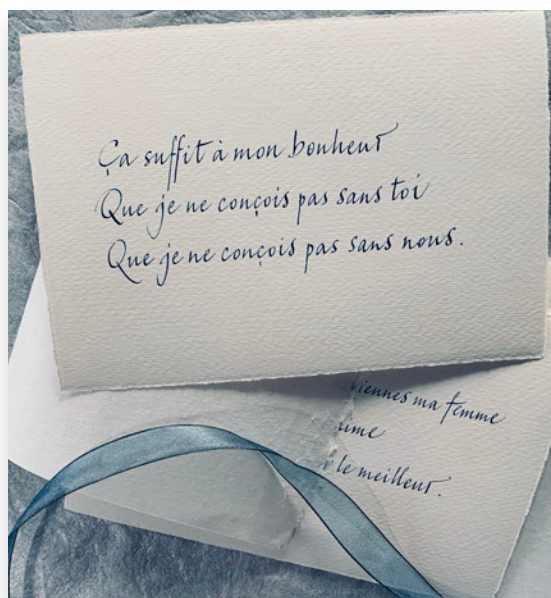 Ça suffit à mon bonheur
Que je ne conçois pas sans toi
Que je ne conçois pas sans nous.
viennes ma femme
aime
le meilleur.